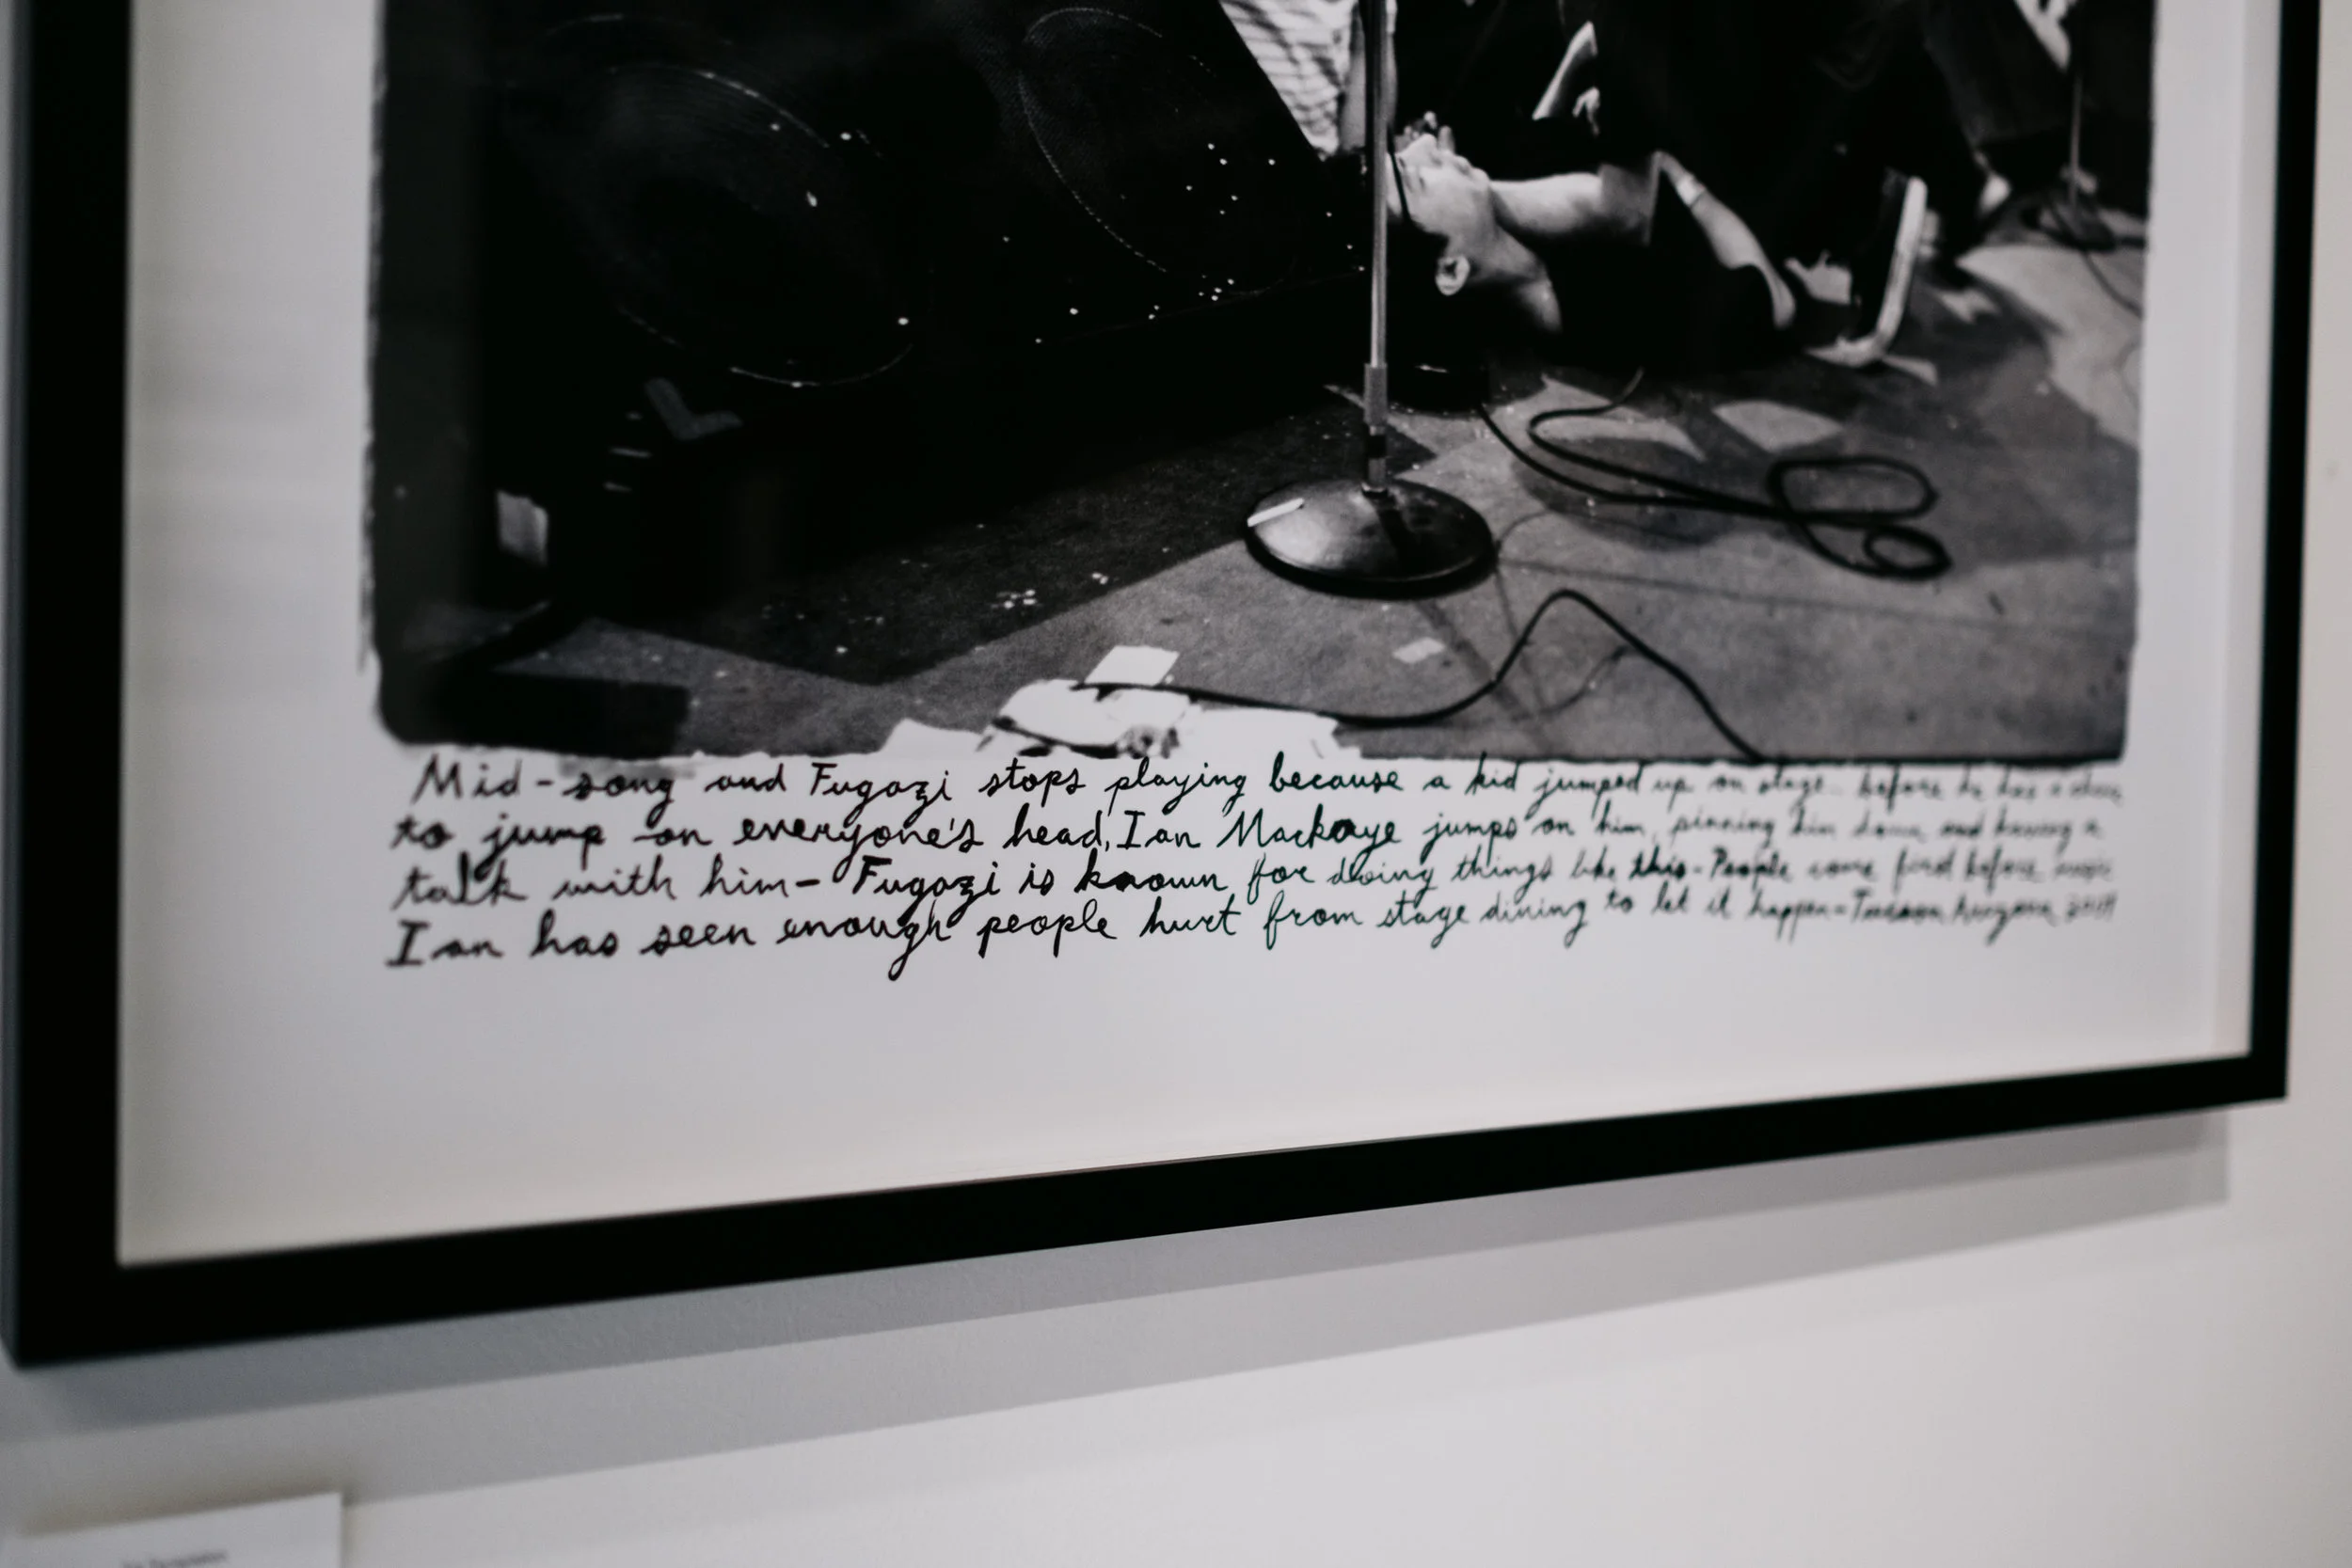 Mid-song and Fugazi stops playing because a kid jumped up on stage before he has a chance
to jump on everyone's head, Ian Mackaye jumps on him, pinning him down and having a
talk with him- Fugazi is known for doing things like this- People come first before music
Ian has seen enough people hurt from stage diving to let it happen-